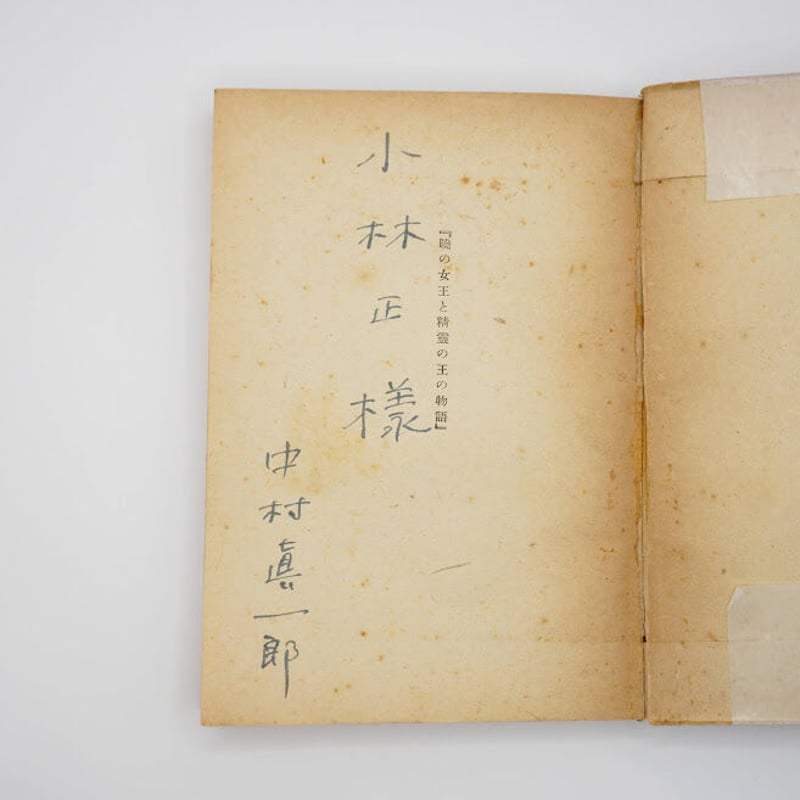 『曉の女王と精靈の王の物語』
小林正樣
中村眞一郎